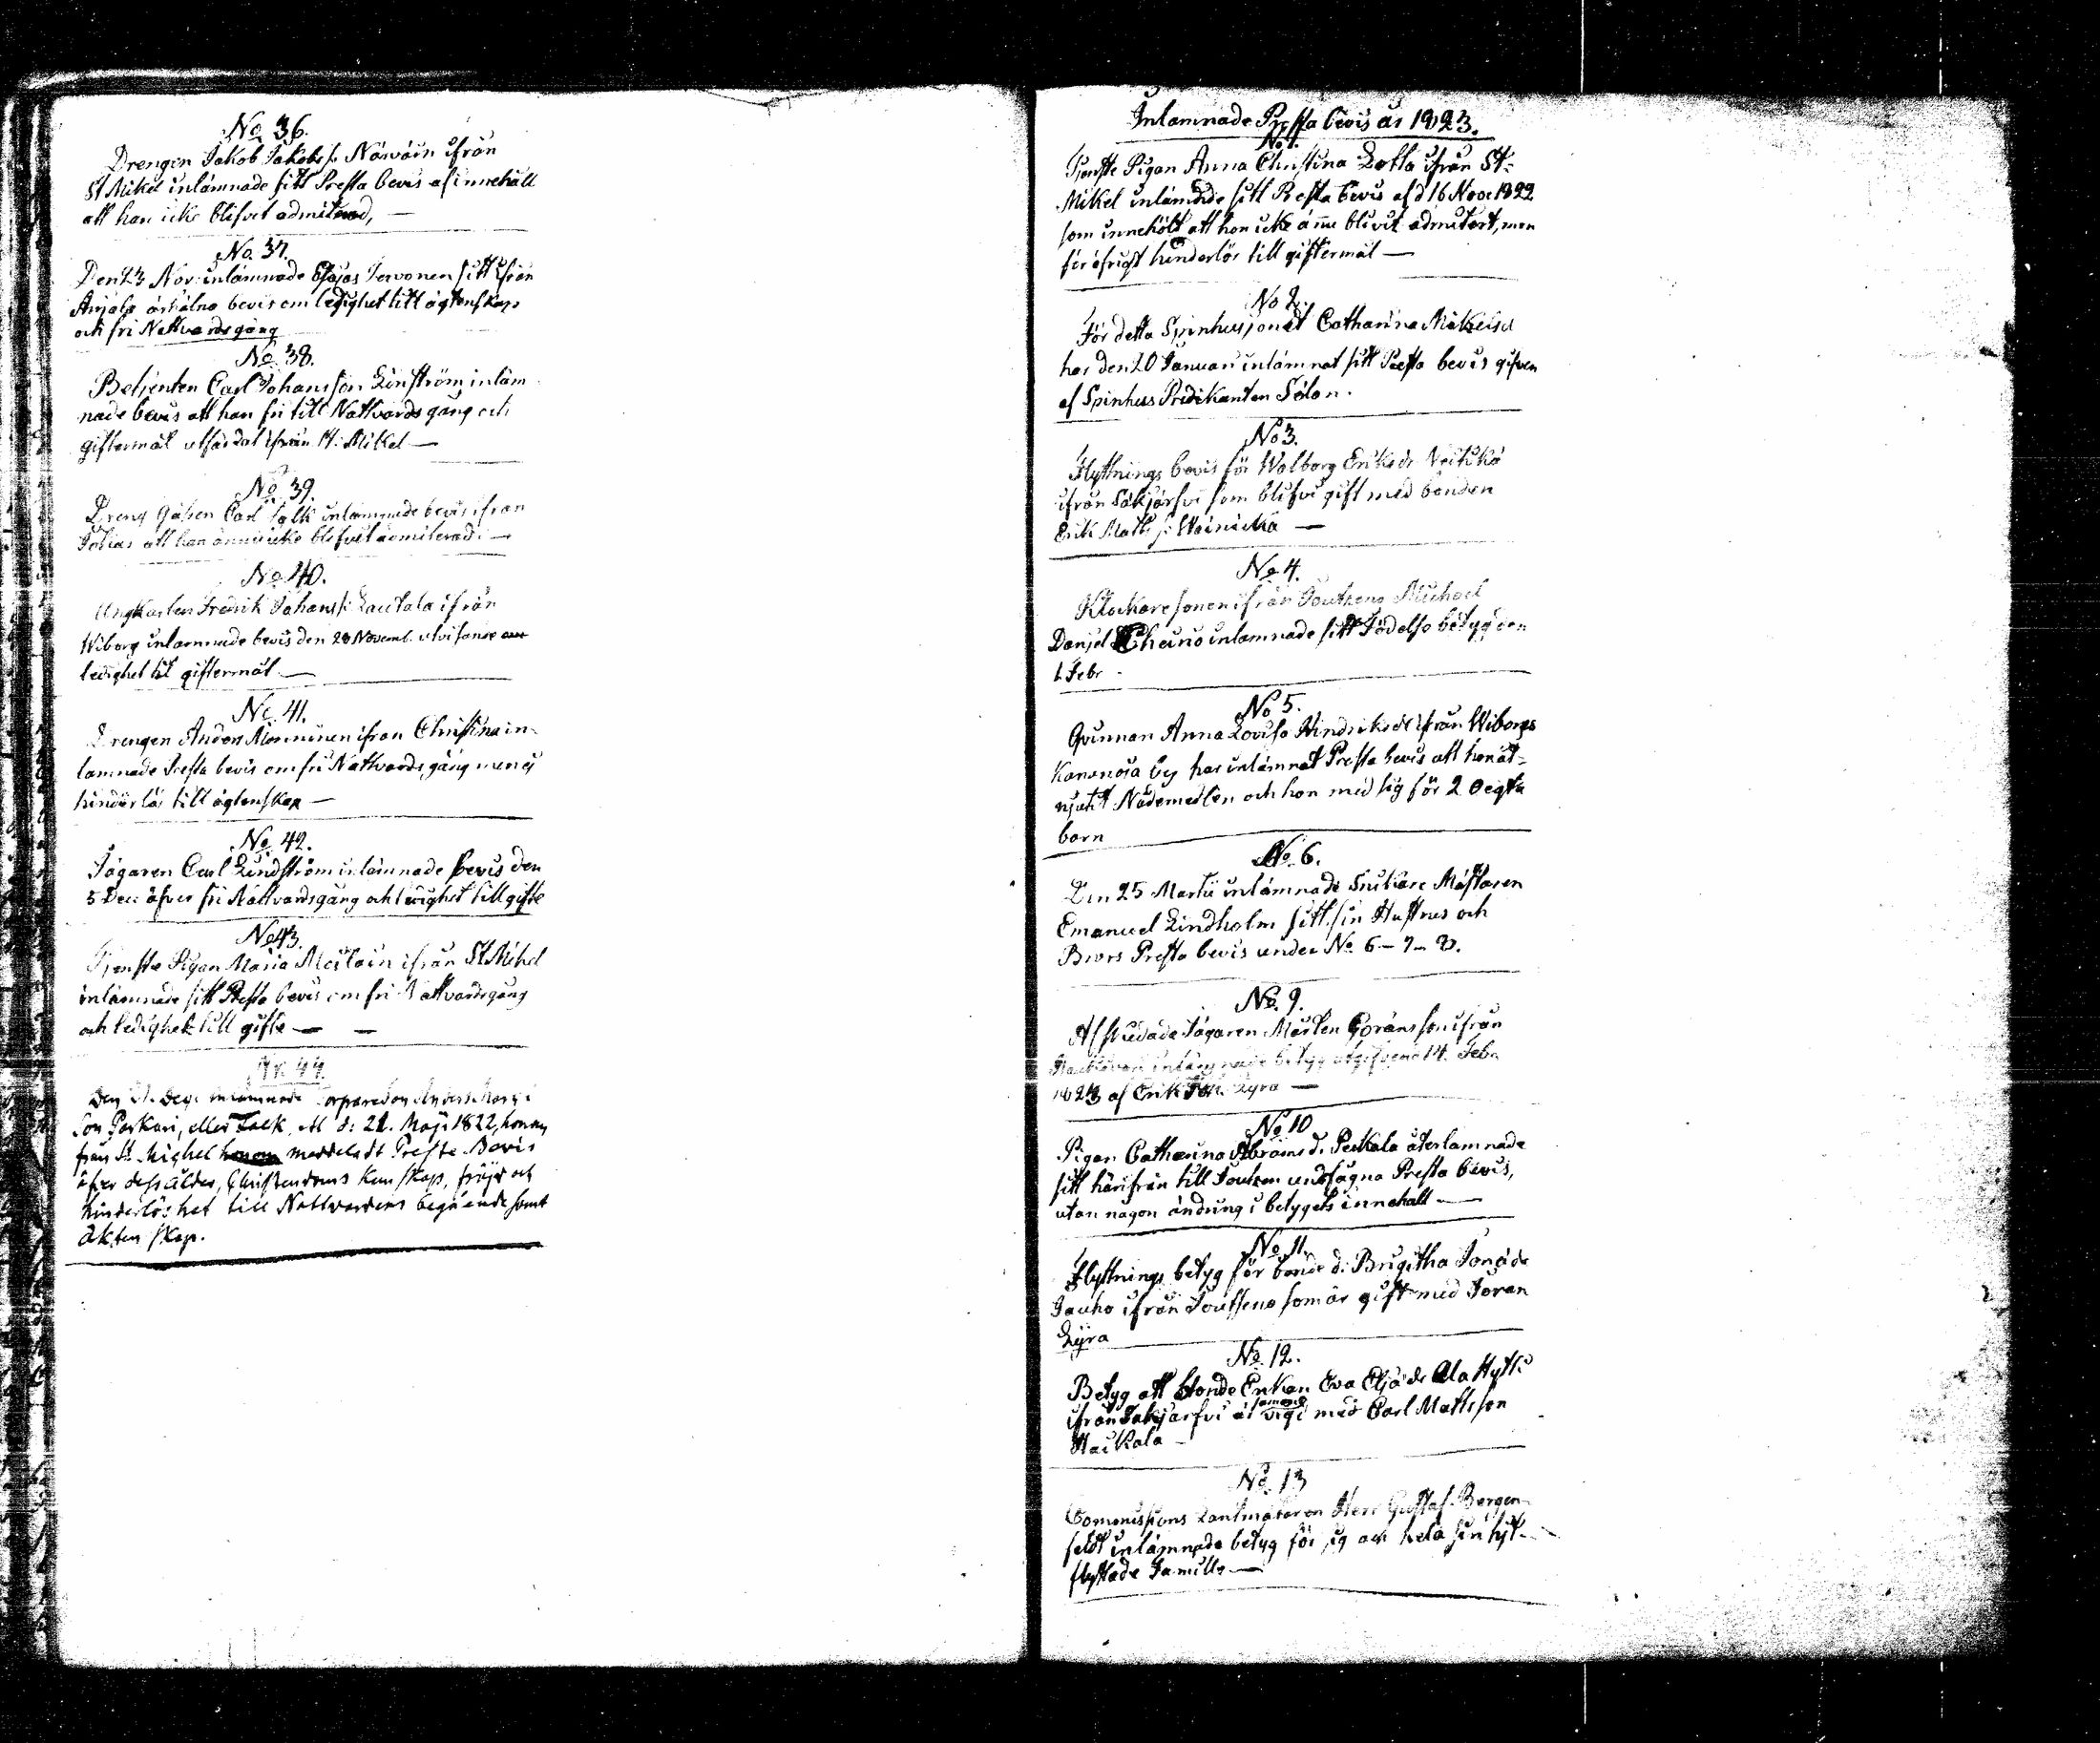 No 36.
Drengen Jakob Jakobs s. Närväin ifrån
St Mikel inlämnade sitt Presta bevis af innehåll
att han icke blifvit admiterad, —
No. 37.
Den 23 Nov: inlämnade Esajas Tervonen sitt ifrån
Anjala erhålna bevis om ledighet till ägtenskap
och fri Nattvardsgång
No. 38.
Betjenten Carl Johansson Linström inläm
nade bevis att han fri till Nattvards gång och
giftermål utfärdat ifrån St: Mikel —
No. 39.
Dreng Gåssen Carl Falk inlämnade bevis ifrån
att han ännu icke blifvit admiterad. —
No. 40.
Ungkarlen Fredrik Johanss: Lautala ifrån
Wiborg inlämnade bevis den 28 Novemb. utvisande
ledighet til giftermål —
No. 41.
Drengen Anders Monninen ifrån Christina in-
lämnade Presta bevis om fri Nattvards gång men ej
hinderlös till ägtenskap —
No. 42.
Jägaren Carl Lindström inlämnade bevis den
5 Dec: öfver fri Nattvardsgång och ledighet till gifte
No 43.
Tjenste Pigan Maria ifrån St Mikel
inlämnade sitt Presta bevis om fri Nattvardsgång
och ledighet till gifte — —
Nr. 44.
Den Dec. inlämnade Anders
Son Parkari, eller Falk, d: 21. Maji 1822, honom
från St. Michel meddeladt Preste-Bevis
öfver dess ålder, Christendoms kunskap, fräjd och
hinderlöshet till Nattvardens begående samt
äktenskap.
Inlamnade Presta bevis år 1823.
No 1.
Tjenste Pigan Anna Christina Lotta ifrån St.
Mikel inlämnade sitt Presta bevis af d 16 Nove 1822
som innehölt att hon icke ännu blivit admitert, men
för öfrigt hinderlös till giftermål —
No 2.
För detta Spinhushjonet Catharina Mikelsd
har den 20 Januari inlämnat sitt Presta bevis gifven
af Spinhus Predikanten Solon.
No 3.
Flyttnings bevis för Walborg Eriksdr
ifrån Sakjärfvi som blifvi gift med bonden
Erik Matts s:
No 4.
Klockare sonen ifrån Joutseno Michael
Daniel inlamnade sitt Födelse betyg den
1. Febr -
No 5.
Qvinnan Anna Lovisa Hindriksdr ifrån Wiborgs
by har inlämnat Presta bevis att hon åt-
njutit Nådemedlen och hon med sig för 2 Oegta
barn
No. 6.
Den 25 Martii inlämnade Snikare Mästaren
Emanuel Lindholm sitt, sin Hustrus och
Brors Presta bevis under No 6 - 7 - 8.
No. 9.
Afskedade Jägaren Mårten Göransson ifrån
inlämnade betyg utgifvena 14. Febr
1823 af Erik Joh. Lyra —
No 10
Pigan Catharina Abrams d. Peikala återlamnade
sitt härifrån till Joutsen undfågna Presta bevis,
utan någon ändring i betygets innehall —
No. 11.
Flyttnings betyg för bonde d: Brigitha Jonädr
Jauho ifrån Joutseno som är gift med Joran
Lyra
No. 12.
Betyg att bonde Enkan Eva Eljädr Ala Hytti
ifrån Sakjärfvi är samman vigd med Carl Mattsson
Haikala —
No. 13
Commissions Lantmätaren Herr Gustaf Bergen-
feldt inlämnade betyg för sig och hela sin hit-
flyttade Famille —